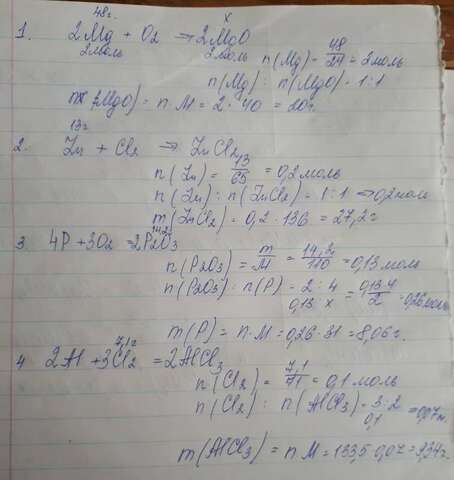 48г. х
1. 2Mg + O2 → 2MgO
2моль 2моль n(Mg) = 48/24 = 2моль
n(Mg) : n(MgO) = 1:1
m(MgO) = n M = 2 · 40 = 80г
13г
2. Zn + Cl2 → ZnCl2
n(Zn) = 13/65 = 0,2 моль
n(Zn) : n(ZnCl2) = 1:1 → 0,2 моль
m(ZnCl2) = 0,2 · 136 = 27,2г
14,2г
3 4P + 3O2 = 2P2O3
n(P2O3) = m/M = 14,2/110 = 0,13 моль
n(P2O3) : n(P) = 2 : 4
0,13 х = 0,13·4/2 = 0,26моль
m(P) = n·M = 0,26·31 = 8,06г.
7,1г
4 2Al + 3Cl2 = 2AlCl3
n(Cl2) = 7,1/71 = 0,1 моль
n(Cl2) : n(AlCl3) = 3:2
0,1 = 0,07м.
m(AlCl3) = n M = 133,5·0,07 = 9,34г.